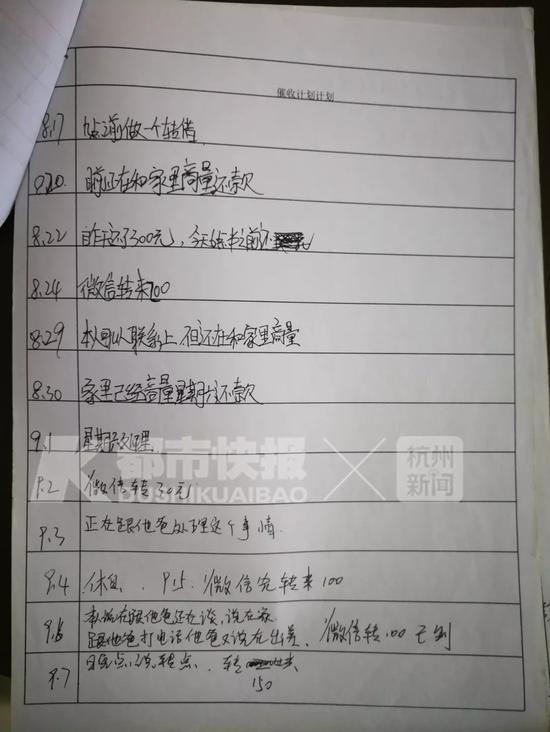 催收计划计划
8.17 前做一个转借
8.20. 目前正在和家里商量还款
8.22 昨天还了300元,今天
8.24 微信转来700
8.29 本人可以联系上,但还在和家里商量
8.30 家里已经商量星期六还款
9.1 星期 处理
都市快报 × 杭州新闻
KUAIBAO
9.2 微信转30元
9.3 正在跟他爸处理这个事情.
9.4 休息、9.5、微信先转来100
9.6 本人 在跟他爸还在谈,说在家
跟他爸打电话他爸又说在出差、微信转100已到
9.7 转
150